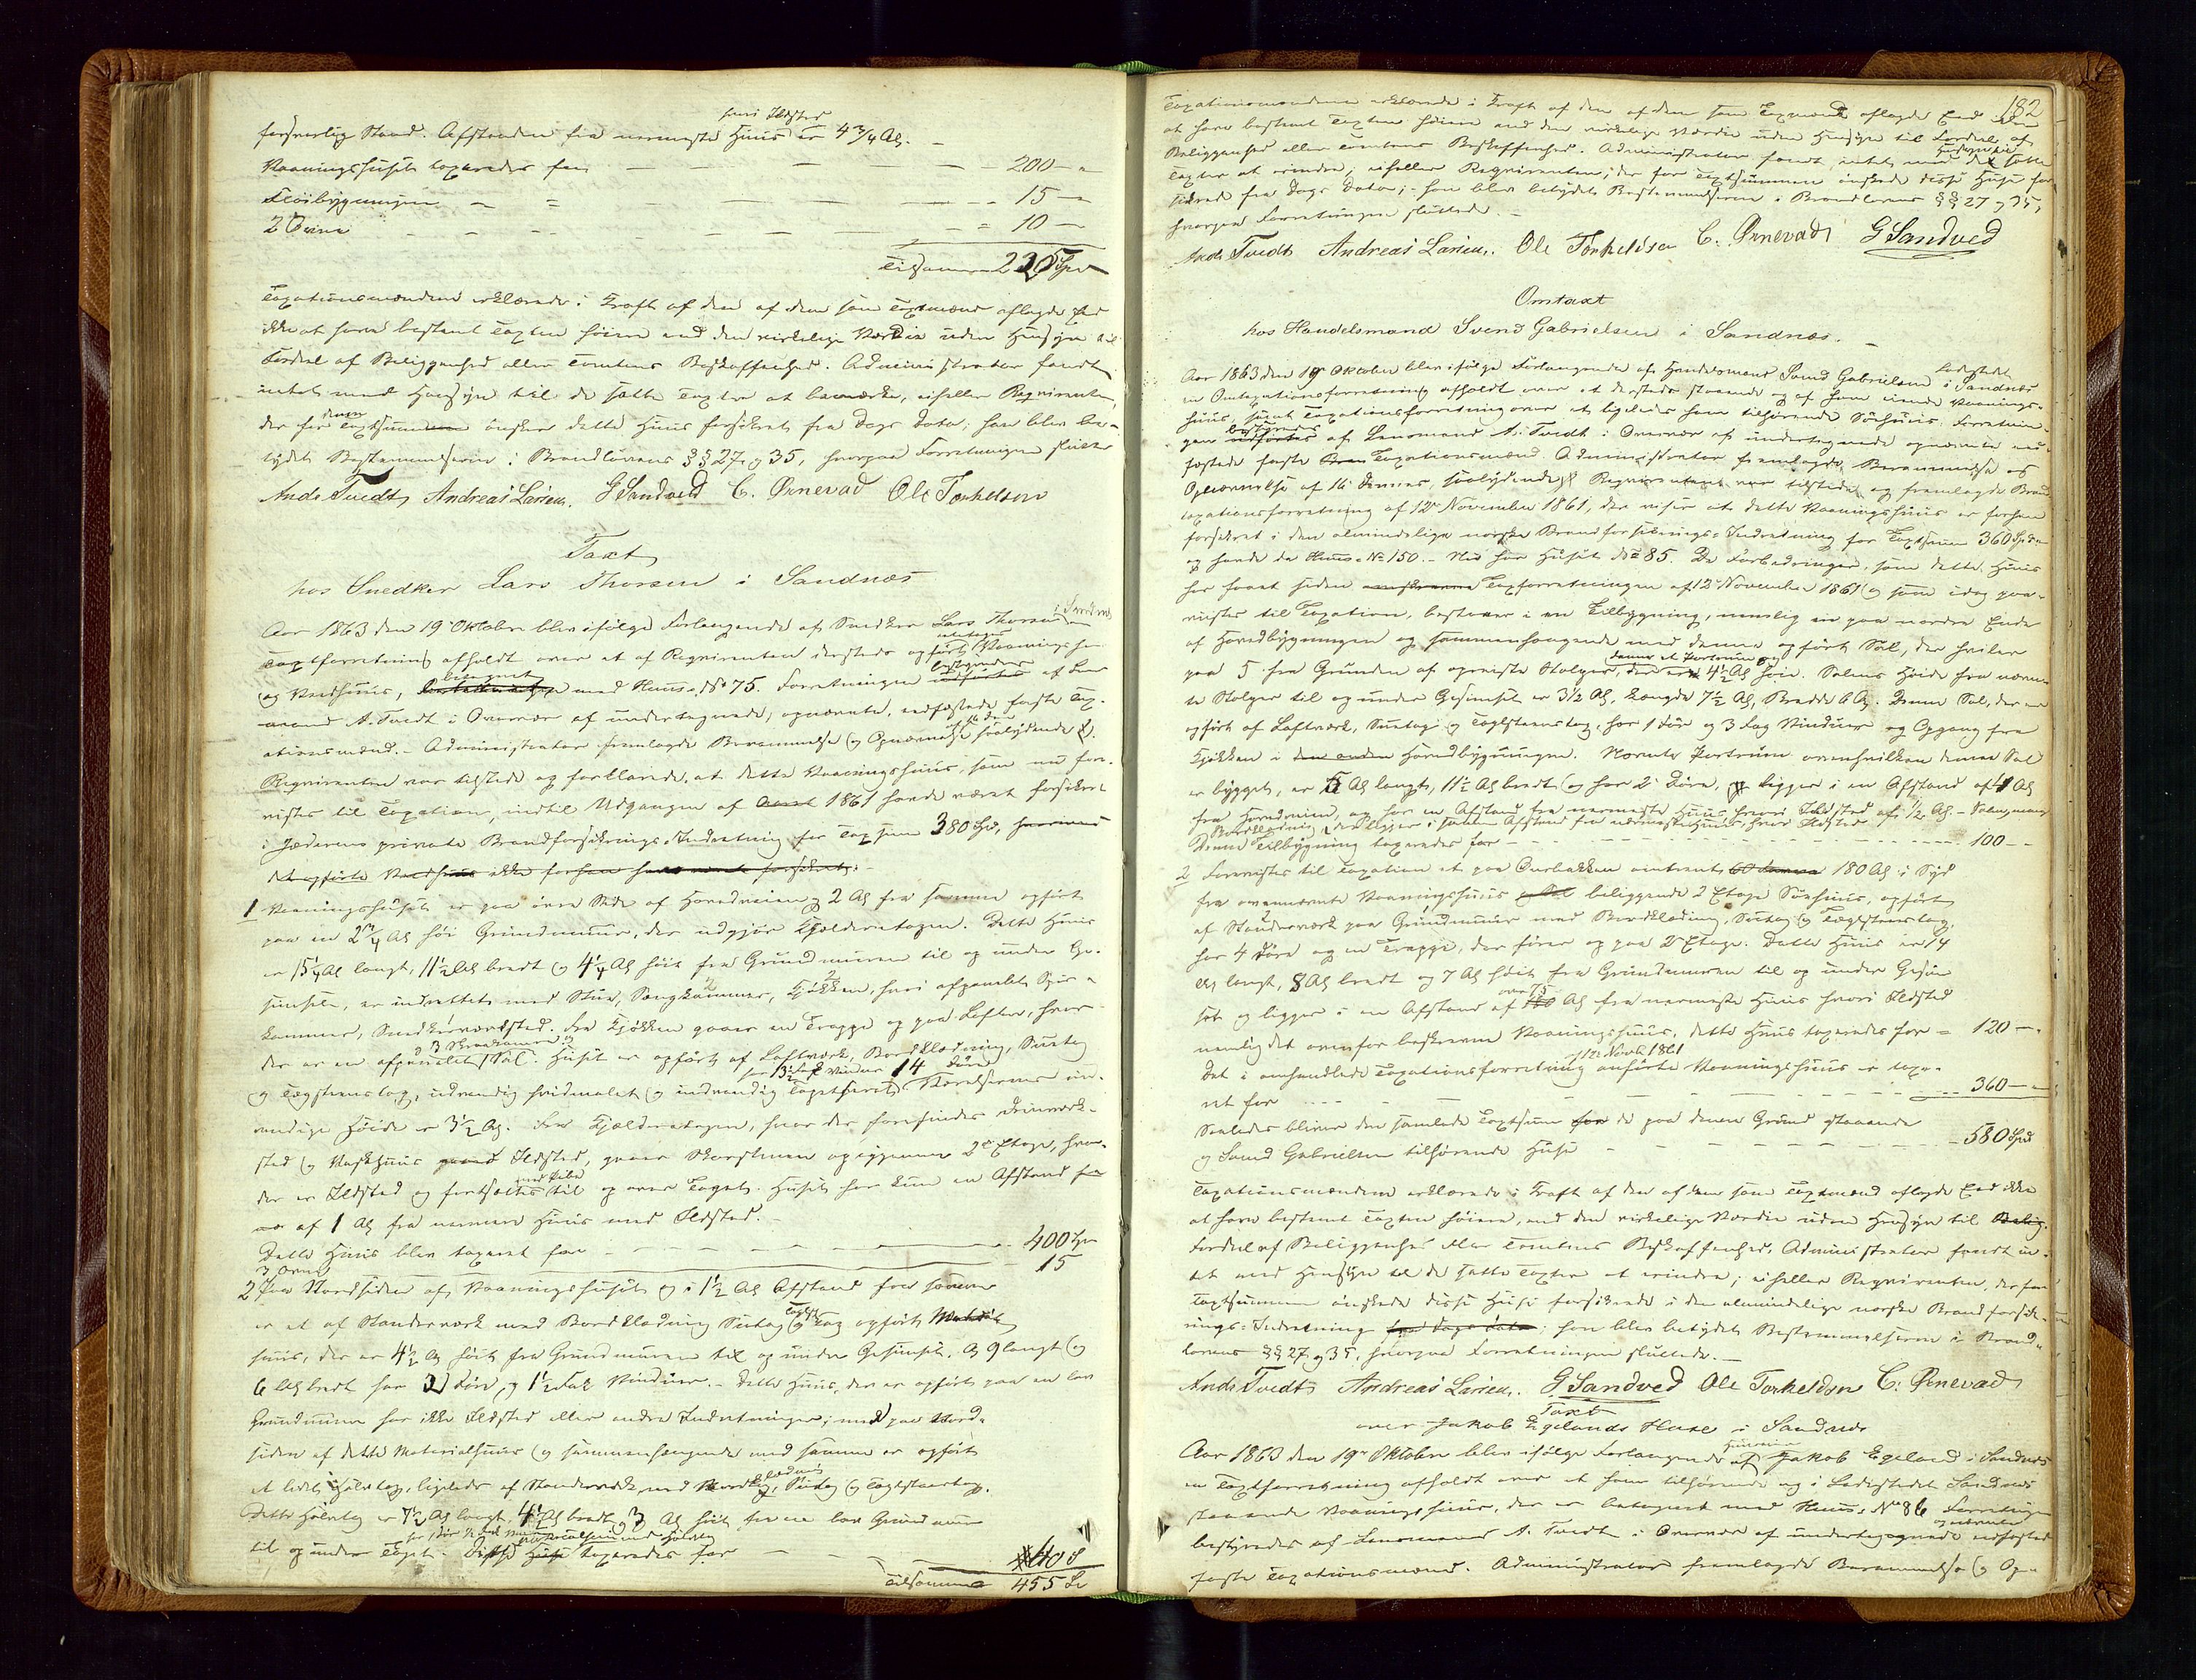 hvori Ildsted
forsvarlig Stand. Afstanden fra nærmeste Huus er 4 3/4 Al. -
Vaaningshuset taxeredes for — — — 200 — "
Fløibygningen — " — — — 15 — "
2 Ovne — — — — 10 —
Tilsammen 225 Spd
Taxationsmændene erklærede i Kraft af den af dem som Taxtmænd aflagde Eed
ikke at have bestemt Taxten høiere end den virkelige Værdie uden Hensyn til
Fordeel af Beliggenhed eller Tomtens Beskaffenhed. Administrator fandt
intet med Hensyn til de satte Taxter at bemærke, eiheller Reqvirenten,
der for denne Taxtsummen ønsker dette Huus forsikret fra Dags Dato; han blev be-
tydet Bestemmelserne i Brandlovens §§ 27 og 35, hvorpaa Forretningen sluttet
Ands Tvedt, Andreas Larsen. G Sandved C. Ørnevad Ole Torkelsen
Taxt
hos Snedker Lars Thorsen i Sandnæs
Aar 1863 den 19 Oktober blev ifølge Forlangende af Snedker Lars Thorsen i Sandnæs en
Taxtforretning afholdt over et af Reqvirenten dersteds opført Vaaningshuus
og Vedhuus, betegnet med Huus No 75. Forretningen bestyredes af Lens-
mand A. Tvedt i Overvær af undertegnede, opnævnte, edfæstede faste Tax-
ationsmænd. - Administrator fremlagde Berammelse og Opnævnelse af 16 dennes saalydende.
Reqvirenten var tilstede og forklarede, at dette Vaaningshuus, som nu fore-
vistes til Taxation, indtil Udgangen af 1861 havde været forsikret
i Jæderens private Brandforsikrings-Indretning for Taxtsum 380 Spd,
det opførte Vedhuus ikke forhen have været forsikret. -
1 Vaaningshuset er paa øvre Side af Hovedveien og 2 Al fra samme opført
paa en 2 3/4 Al høi Grundmuur, der udgjør Kjelderetagen. Dette Huus
er 15 1/4 Al langt, 11 1/2 Al bredt og 4 1/4 Al høit fra Grundmuren til og under Ge-
simsen, er indrettet med Stue, 2 Sengkammer, 2 Kjøkken, hvori afpanelet Spise-
kammer, Snedkerværksted. Fra Kjøkken gaaer en Trappe op paa Loftet, hvor
der er en afpanelet Sal. Huset er opført af Laftværk, Bordklædning, Sutag
og Taglsteenstag, udvendig hvidmalet og indvendig Tapetseret, har 13 1/2 Fag Vinduer 14 Døre. Værelsernes ind-
vendige Høide er 3 1/2 Al. Fra Kjelderetagen, hvor der forefindes
sted og Vaskhuus Ildsted, gaaer Skorstenen op igjennem 2de Etage, hvor
der er Ildsted og fortsættes med Pibe til og over Taget. Huset har kun en Afstand
af 1 Al fra nærmeste Huus med Ildsted. -
Dette Huus blev taxeret for — — — 400 Spd
3 Ovne — 15
2 Paa Nordsiden af Vaaningshuset og i 1 1/2 Al Afstand fra samme
er et af Standerværk med Bordklædning Sutag og Taglst Tag opført
huus, der er 4 1/2 Al høit fra Grundmuren til og under Gesimsen, Al 9 langt og
6 Al bredt har 2 Døre og 1 1/2 Fag Vinduer. - Dette Huus, der er opført paa en lav
Grundmuur har ikke Ildsted eller andre Indretninger; med paa Nord-
siden af dette Materialhuus og sammenhængende med samme er opført
et lidet Halvtag, ligeledes af Standerværk med Bordklædning, Sutag og Taglsteenstag.
Dette Halvtag er 7 1/2 Al langt, 4 1/2 Al bredt og 3 Al høit fra en lav Grundmuur
til og under Taget. taxeredes for — — 40 "
Tilsammen 455 Sp
182
Taxationsmændene erklærede i Kraft af den af dem som Taxtmænd aflagde Eed ikke
at have bestemt Taxten høiere end den virkelige Værdie uden Hensyn til Fordeel af
Beliggenhed eller Tomtens Beskaffenhed. Administrator fandt intet med Hensyn til de satte
Taxter at erindre, eiheller Reqvirenten, der for Taxtsummen ønskede disse Huse for-
sikrede fra Dags Dato; - han blev betydet Bestemmelserne i Brandlovens §§ 27 og 35,
hvorpaa Forretningen sluttede. -
Ands Tvedt Andreas Larsen. Ole Torkelsen C. Ørnevad G Sandved
Omtaxt
hos Handelsmand Svend Gabrielsen i Sandnæs. -
Aar 1863 den 19 Oktober blev ifølge Forlangende af Handelsmand Svend Gabrielsen i Ladestedet Sandnæs
en Omtaxationsforretning afholdt over et dersteds staaende og af ham eiende Vaanings-
huus, samt Taxationsforretning over et ligeledes ham tilhørende Søehuus. Forretnin-
gen bestyredes af Lensmand A. Tvedt i Overvær af undertegnede opnævnte ed-
fæstede faste Taxationsmænd. Administrator fremlagde Berammelse og
Opnævnelse af 16 dennes, saalydende. Reqvirenten var tilstede og fremlagde Brand-
taxationsforretning af 12 November 1861, der viser at dette Vaaningshuus er forhen
forsikret i den almindelige norske Brandforsikrings-Indretning for Taxtsum 360 Spd
og havde da Huus No 150. - Nu har Huset No 85. De Forbedringer, som dette Huus
har faaet siden Taxtforretningen af 12 November 1861 og som idag fore-
vistes til Taxation, bestaaer i en Tilbygning, nemlig en paa nordre Ende
af Hovedbygningen og sammenhængende med denne opført Sal, der hviler
paa 5 fra Grunden af opreiste Stolper, danner et Portrum og er 4 1/2 Al høi. Salens Høide fra nævn-
te Stolper til og under Gesimset er 3 1/2 Al, Længde 7 1/2 Al, Bredde 6 Al. Denne Sal, der er
opført af Laftværk, Sutag og Taglsteenstag, har 1 Dør og 3 Fag Vinduer og Opgang fra
Kjøkken i Hovedbygningen. Nævnte Portrum ovenhvilken denne Sal
er bygget, er Al langt, 11 1/2 Al bredt og har 2 Døre, ligger i en Afstand af 4 Al
fra Hovedveien, og har en Afstand fra nærmeste Huus hvori Ildsted af 1/2 Al. -
Denne Tilbygning taxeredes for — — — 100 —
2 Forevistes til Taxation et paa omtrent 180 Al i Syd
fra ovennævnte Vaaningshuus beliggende 2 Etages Søehuus, opført
af Standerværk paa Grundmuur med Bordklædning, Sutag og Taglsteenstag,
har 4 Døre og en Trappe, der fører op paa 2 Etage. Dette Huus er 14
Al langt, 8 Al bredt og 7 Al høit fra Grundmuren til og under Gesim-
set og ligger i en Afstand af over 75 Al fra nærmeste Huus hvori Ildsted
nemlig det ovenfor beskrevne Vaaningshuus, dette Huus taxeredes for " 120 — "
Det i omhandlede Taxationsforretning af 12 Novbr 1861 anførte Vaaningshuus er taxe-
ret for — — — 360 —
Saaledes bliver den samlede Taxtsum for de paa denne Grund staaende
og Svend Gabrielsen tilhørende Huse — — — 580 Spd
Taxationsmændene erklærede i Kraft af den af dem som Taxtmænd aflagde Eed ikke
at have bestemt Taxten høiere, end den virkelige Værdie uden Hensyn til
Fordeel af Beliggenhed eller Tomtens Beskaffenhed. Administrator fandt in-
tet med Hensyn til de satte Taxter at erindre; eiheller Reqvirenten, der for
Taxtsummen ønskede disse Huse forsikrede i den almindelige norske Brandforsik-
rings-Indretning fra Dags Dato; han blev betydet Bestemmelserne i Brand-
lovens §§ 27 og 35, hvorpaa Forretningen sluttede. -
Ands Tvedt Andreas Larsen. G. Sandved Ole Torkeldsen C. Ørnevad
Taxt
over Jakob Egelands Huse i Sandnæs
Aar 1863 den 19 Oktober blev ifølge Forlangende af Jakob Egeland i Sandnæs
en Taxtforretning afholdt over et ham tilhørende og i Ladestedet Sandnæs
staaende Vaaningshuus, der er betegnet med Huus No 86 Forretningen
bestyredes af Lensmand A. Tvedt i Overvær af undertegnede opnævnte edfæstede
faste Taxationsmænd. Administrator fremlagde Berammelse og Op-